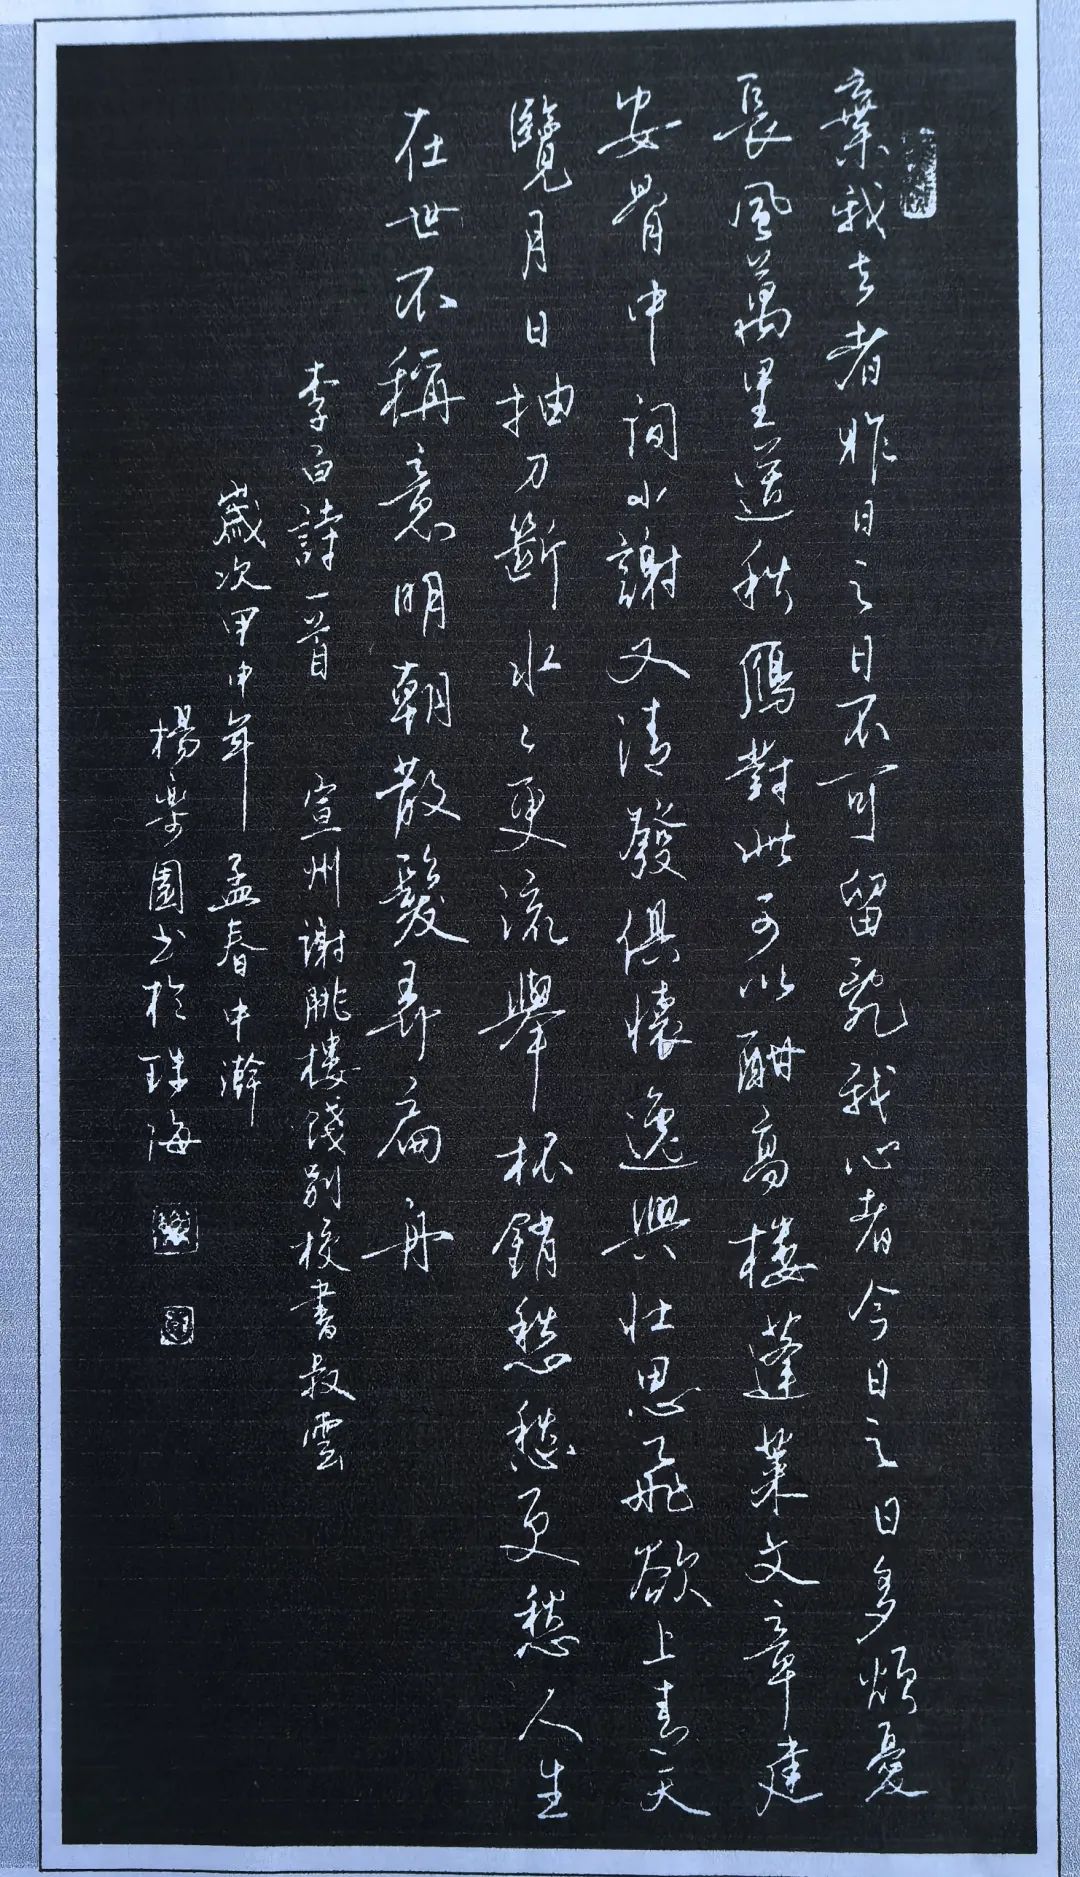 棄我去者昨日之日不可留亂我心者今日之日多煩憂
長風萬里送秋鴈對此可以酣高樓蓬萊文章建
安骨中間小謝又清發俱懷逸興壯思飛欲上青天
覽月日抽刀斷水々更流舉杯銷愁愁更愁人生
在世不稱意明朝散髮弄扁舟
李白詩一首 宣州謝朓樓餞別校書叔雲
歲次甲申年 孟春中澣
楊樂園書於珠海